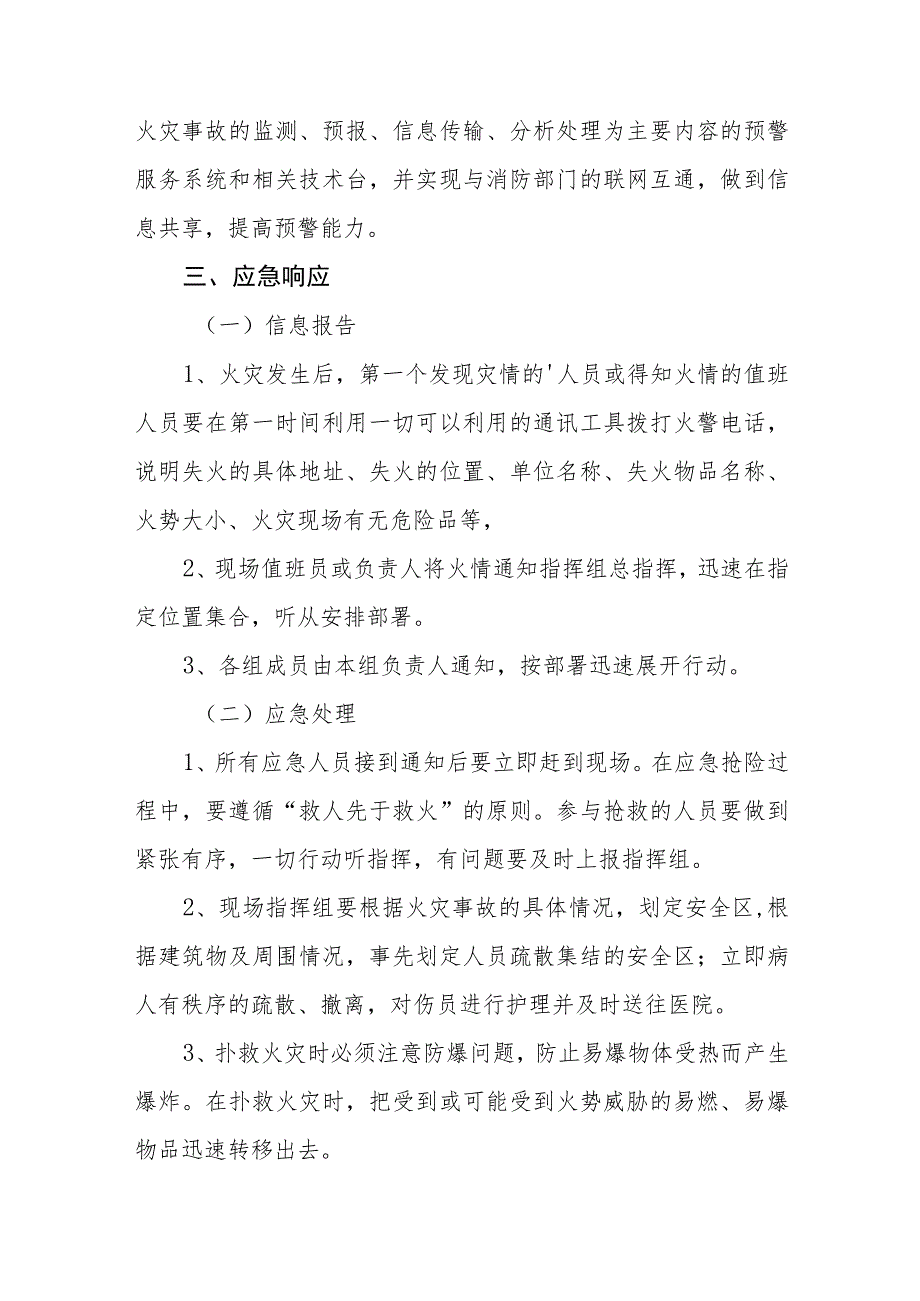 火灾事故的监测、预报、信息传输、分析处理为主要内容的预警
服务系统和相关技术台，并实现与消防部门的联网互通，做到信
息共享，提高预警能力。
三、应急响应
（一）信息报告
1、火灾发生后，第一个发现灾情的'人员或得知火情的值班
人员要在第一时间利用一切可以利用的通讯工具拨打火警电话，
说明失火的具体地址、失火的位置、单位名称、失火物品名称、
火势大小、火灾现场有无危险品等，
2、现场值班员或负责人将火情通知指挥组总指挥，迅速在指
定位置集合，听从安排部署。
3、各组成员由本组负责人通知，按部署迅速展开行动。
（二）应急处理
1、所有应急人员接到通知后要立即赶到现场。在应急抢险过
程中，要遵循“救人先于救火”的原则。参与抢救的人员要做到
紧张有序，一切行动听指挥，有问题要及时上报指挥组。
2、现场指挥组要根据火灾事故的具体情况，划定安全区,根
据建筑物及周围情况，事先划定人员疏散集结的安全区；立即病
人有秩序的疏散、撤离，对伤员进行护理并及时送往医院。
3、扑救火灾时必须注意防爆问题，防止易爆物体受热而产生
爆炸。在扑救火灾时，把受到或可能受到火势威胁的易燃、易爆
物品迅速转移出去。